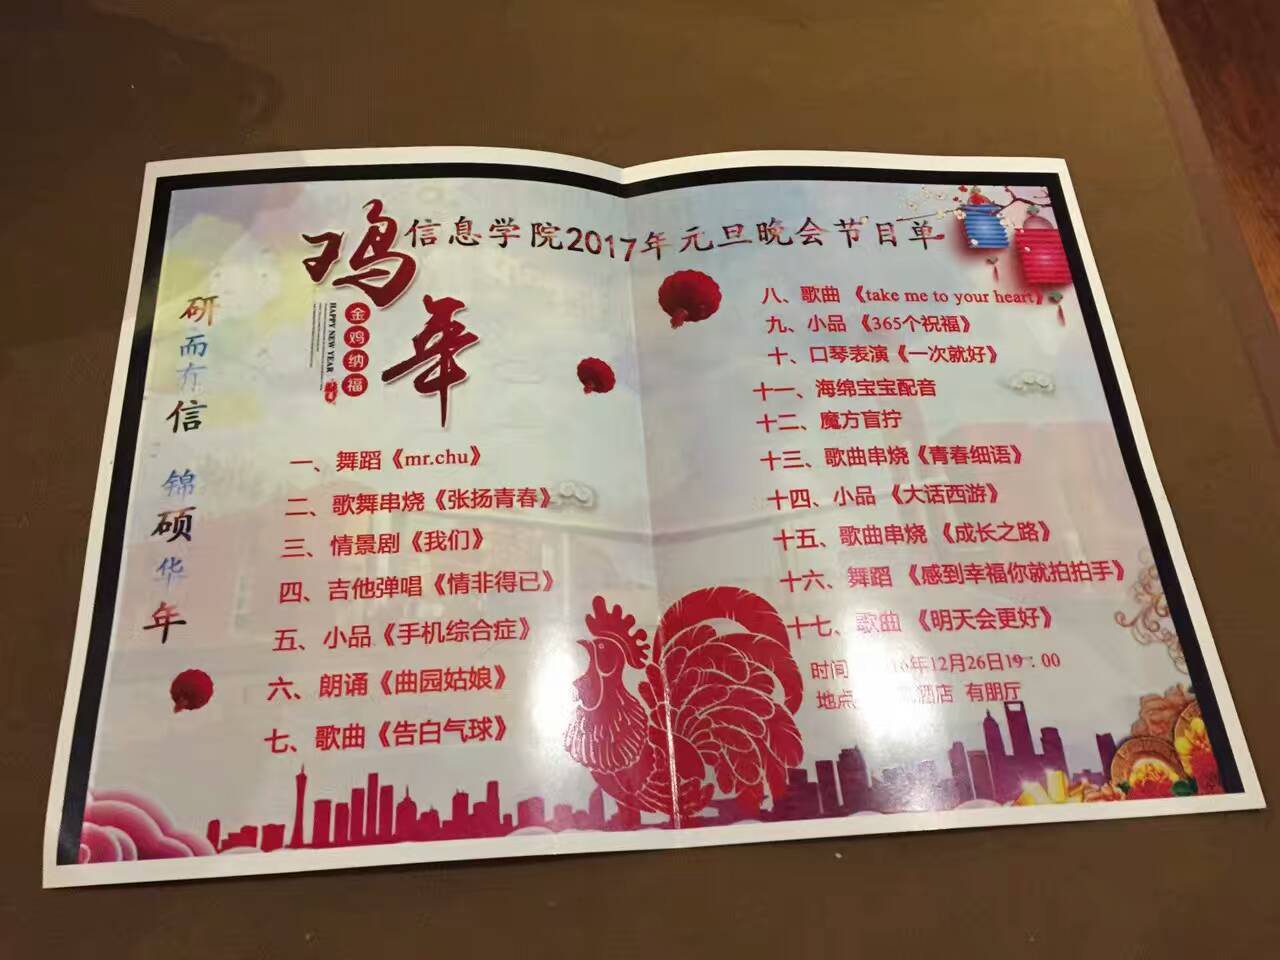 信息学院2017年元旦晚会节目单
鸡年
金鸡纳福
HAPPY NEW YEAR
研而有信
锦硕华年
一、舞蹈《mr.chu》
二、歌舞串烧《张扬青春》
三、情景剧《我们》
四、吉他弹唱《情非得已》
五、小品《手机综合症》
六、朗诵《曲园姑娘》
七、歌曲《告白气球》
八、歌曲《take me to your heart》
九、小品《365个祝福》
十、口琴表演《一次就好》
十一、海绵宝宝配音
十二、魔方盲拧
十三、歌曲串烧《青春细语》
十四、小品《大话西游》
十五、歌曲串烧《成长之路》
十六、舞蹈《感到幸福你就拍拍手》
十七、歌曲《明天会更好》
时间 16年12月26日19：00
地点 酒店 有朋厅